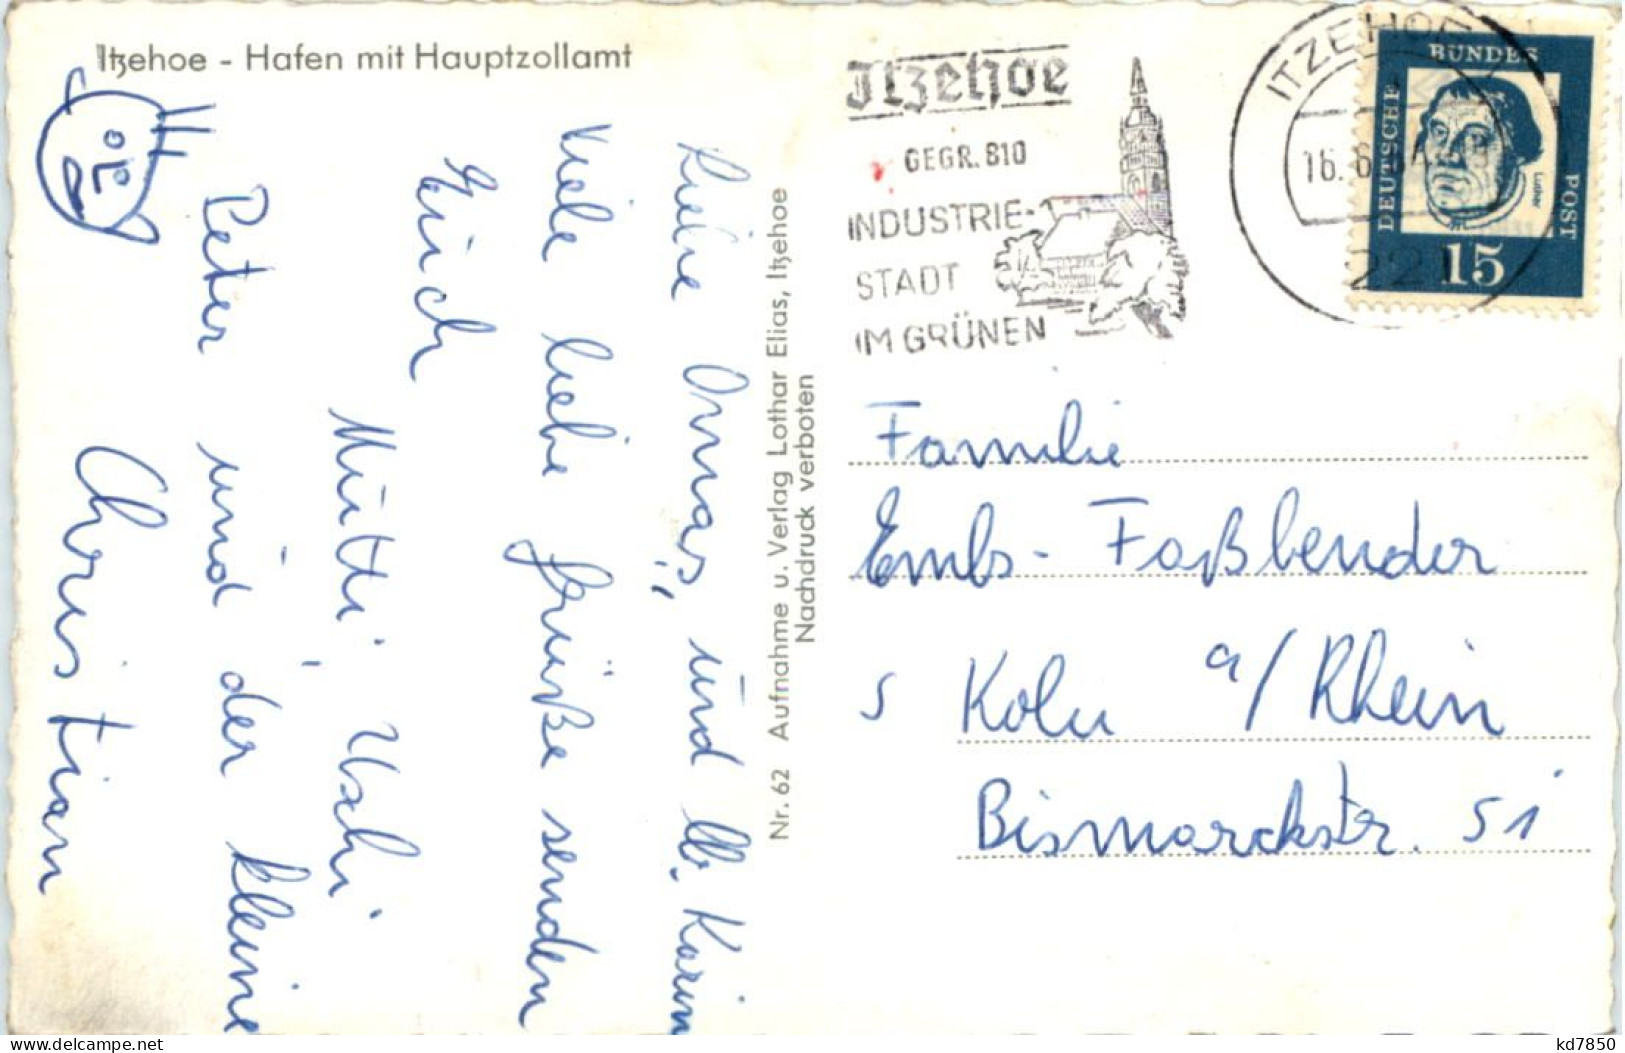 Itzehoe - Hafen mit Hauptzollamt
Liebe Omas, und lb. Karin
Viele liebe Grüße senden
Euch
Mutti, Uschi
Peter und der kleine
Christian
Nr. 62 Aufnahme u. Verlag Lothar Elias, Itzehoe
Nachdruck verboten
Itzehoe
GEGR. 810
INDUSTRIE-
STADT
IM GRÜNEN
ITZEHOE
16.6.
221
DEUTSCHE
BUNDES
POST
Luther
15
Familie
Embs- Faßbender
5 Köln a/Rhein
Bismarckstr. 51
www.delcampe.net
kd7850